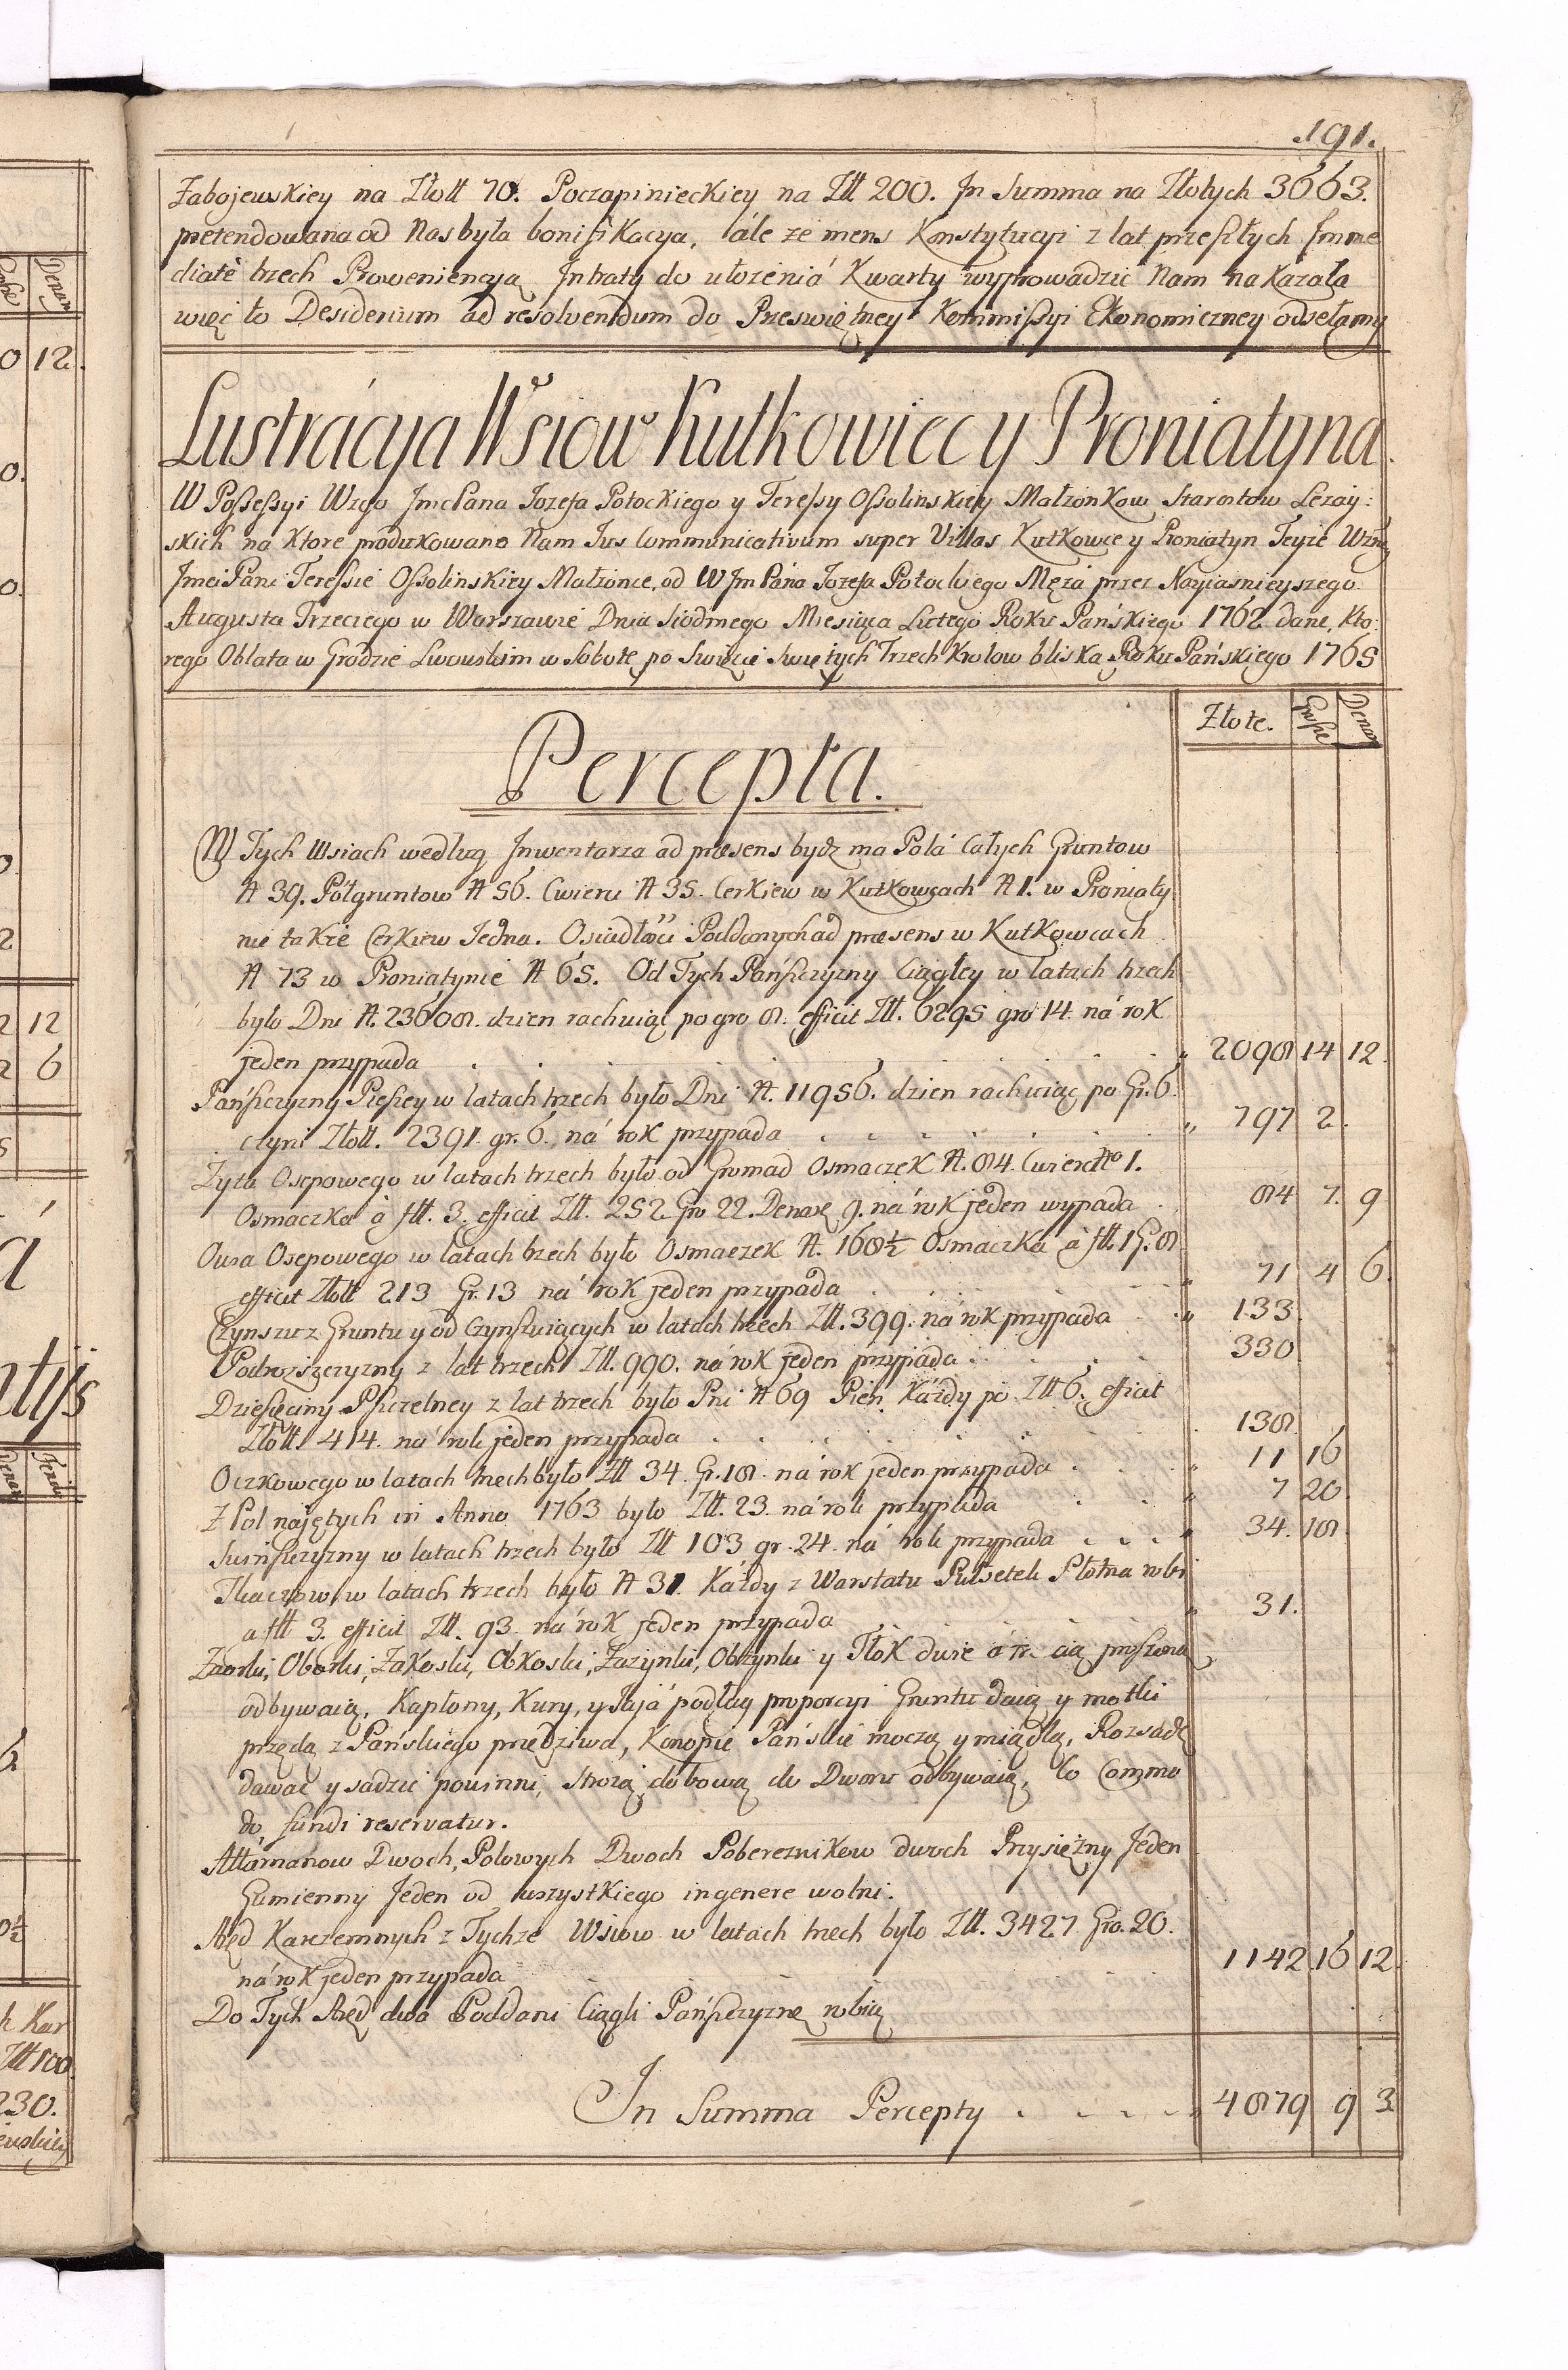 191.
Zabojewskiey na Złott 70. Poczapinieckiey na Złt 200. Jn Summa na Złotych 3663.
pretendowana od Nas była bonifikacya, ále ze mens Konstytucyi z lat przeszłych Imme
diatè trzech Proweniencyą Intraty do ułozeniá Kwarty wyprowadzic Nam nakazała
więc to Desiderium ad resolvendum do Przeswiętney Kommissyi Ekonomiczney odsełamy
Lustrácyja Wsiow Kutkowiec y Proniatyna.
W Possessyi Wzgo JmcPana Jozefa Potockiego y Teressy Ossolinskiey Małzonkow Starostow Lezay:
skich na Ktore produkowano Nam Jus Communicativum super Villas Kutkowce y Proniatyn Teyze Wzney
Jmci Pani Teressie Ossolinskiey Małzonce, od WJm Pána Jozefa Potockiego Męzá przez Nayiasnieyszego
Augusta Trzeciego w Warszawie Dnia Siodmego Miesiąca Lutego Roku Pańskiego 1762 dane, Kto:
rego Oblata w Grodzie Lwowskim w Sobotę po Swięcie Swiętych Trzech Krolow bliską Roku Pańskiego 1765
Złote. Grosze Denar
Percepta.
W Tych Wsiach według Jnwentarza ad præsens bydz ma Polá Całych Gruntow
N 39. Połgruntow N 56. Cwierci N 35. Cerkiew w Kutkowcach N 1. w Proniaty
nie takze Cerkiew Jedna. Osiadłosci Poddanych ad præsens w Kutkowcach
N 73 w Proniatynie N 65. Od Tych Pańszczyzny Ciągłey w latach trzech
było Dni N. 23608. dzien rachuiąc po gro 8. efficit Złt. 6295 gro 14. ná rok
jeden przypada 2098 14 12.
Pańszczyzny Pieszey w latach trzech było Dni N. 11956. dzien rachuiąc po Gr. 6.
czyni Złott. 2391. gr. 6. ná rok przypada 797 2.
Zyta Osepowego w latach trzech było od Gromad Osmaczek N. 84. Cwierc No 1.
Osmaczka á złt. 3. efficit Złt. 252 Gro 22. Denarę 9. ná rok jeden wypada 84 7. 9.
Owsa Osepowego w latach trzech było Osmaczek N. 168½ Osmaczka á złt. 1 G. 8.
efficit Złott 213 Gr. 13 ná rok jeden przypada 71 4 6.
Czynszu z Gruntu y od Czynszuiących w latach trzech Złt. 399. ná rok przypada 133.
Podrozszczyzny z lat trzech Złt. 990. ná rok jeden przypada 330
Dziesięciny Pszczelney z lat trzech było Pni N 69 Pień Kázdy po Złt 6. efficit
Złott. 414. ná rok jeden przypada 138.
Oczkowego w latach trzech było Złt 34. Gr. 18. ná rok jeden przypada 11 16
Z Pol najętych in Anno 1763 było Złt. 23. ná rok przypada 7 20
Swinszczyzny w latach trzech było Złt 103 gr. 24. ná rok przypada 34. 18.
Tkaczow w latach trzech było N 31. Kázdy z Warstatu Pułsetek Płotna robi
a złt 3. efficit Złt. 93. ná rok jeden przypada 31.
Zaorki, Oborki, Zakoski, Obkoski, Zazynki, Obzynki y Tłok dwie á trzecią proszoną
odbywaią, Kapłony, Kury, y Jajá podług proporcyi Gruntu daią y motki
przędą z Pańskiego przędziwa, Konopie Pańskie moczą y miądlą, Rozsadę
dawać y sadzić powinni, Strozą dobową do Dworu odbywaią, co Commo
do fundi reservatur.
Attámanow Dwoch, Polowych Dwoch Poberezników dwoch Przysięzny Jeden
Gumienny Jeden od wszystkiego ingenere wolni.
Aręd Karczemnych z Tychze Wsiow w latach trzech było Złt. 3427 Gro. 20.
ná rok jeden przypada 1142 16 12.
Do Tych Aręd dwa Poddani Ciągli Pańszczyznę robią
Jn Summa Percepty 4879 9 3